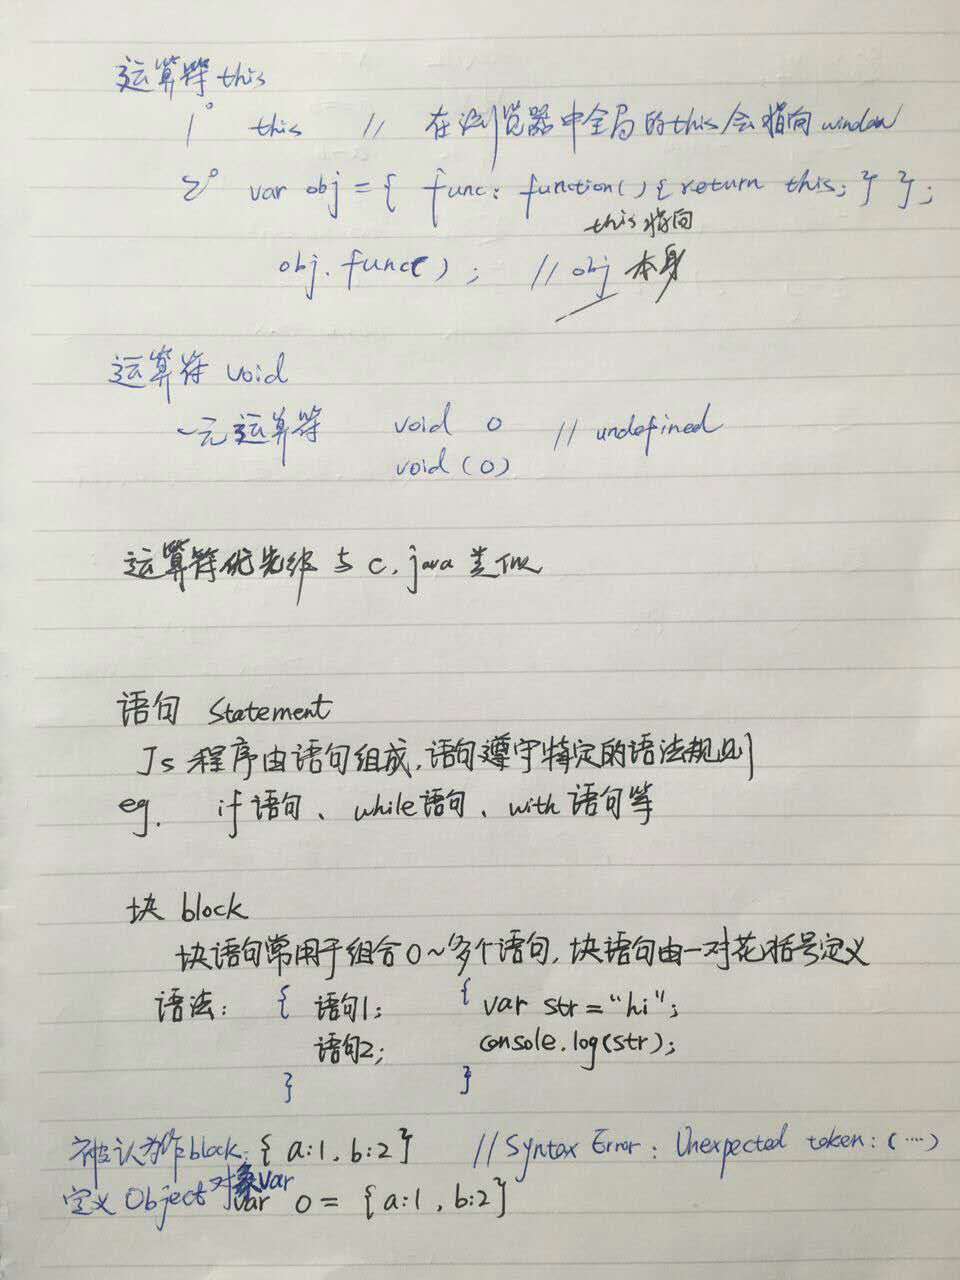 运算符 this
1° this // 在浏览器中全局的this会指向 window
2° var obj = { func: function(){ return this; } };
this 指向
obj.func( ); // obj 本身
运算符 void
一元运算符 void 0 // undefined
void (0)
运算符优先级 与 c, java 类似
语句 Statement
Js 程序由语句组成,语句遵守特定的语法规则
eg. if 语句、while 语句、with 语句等
块 block
块语句常用于组合 0~多个语句,块语句由一对花括号定义
语法: { 语句1; { var str = "hi";
语句2; console.log(str);
} }
被认为作block: { a:1, b:2 } // Syntax Error: Unexpected token: (····)
定义 Object 对象var
var o = { a:1, b:2 }